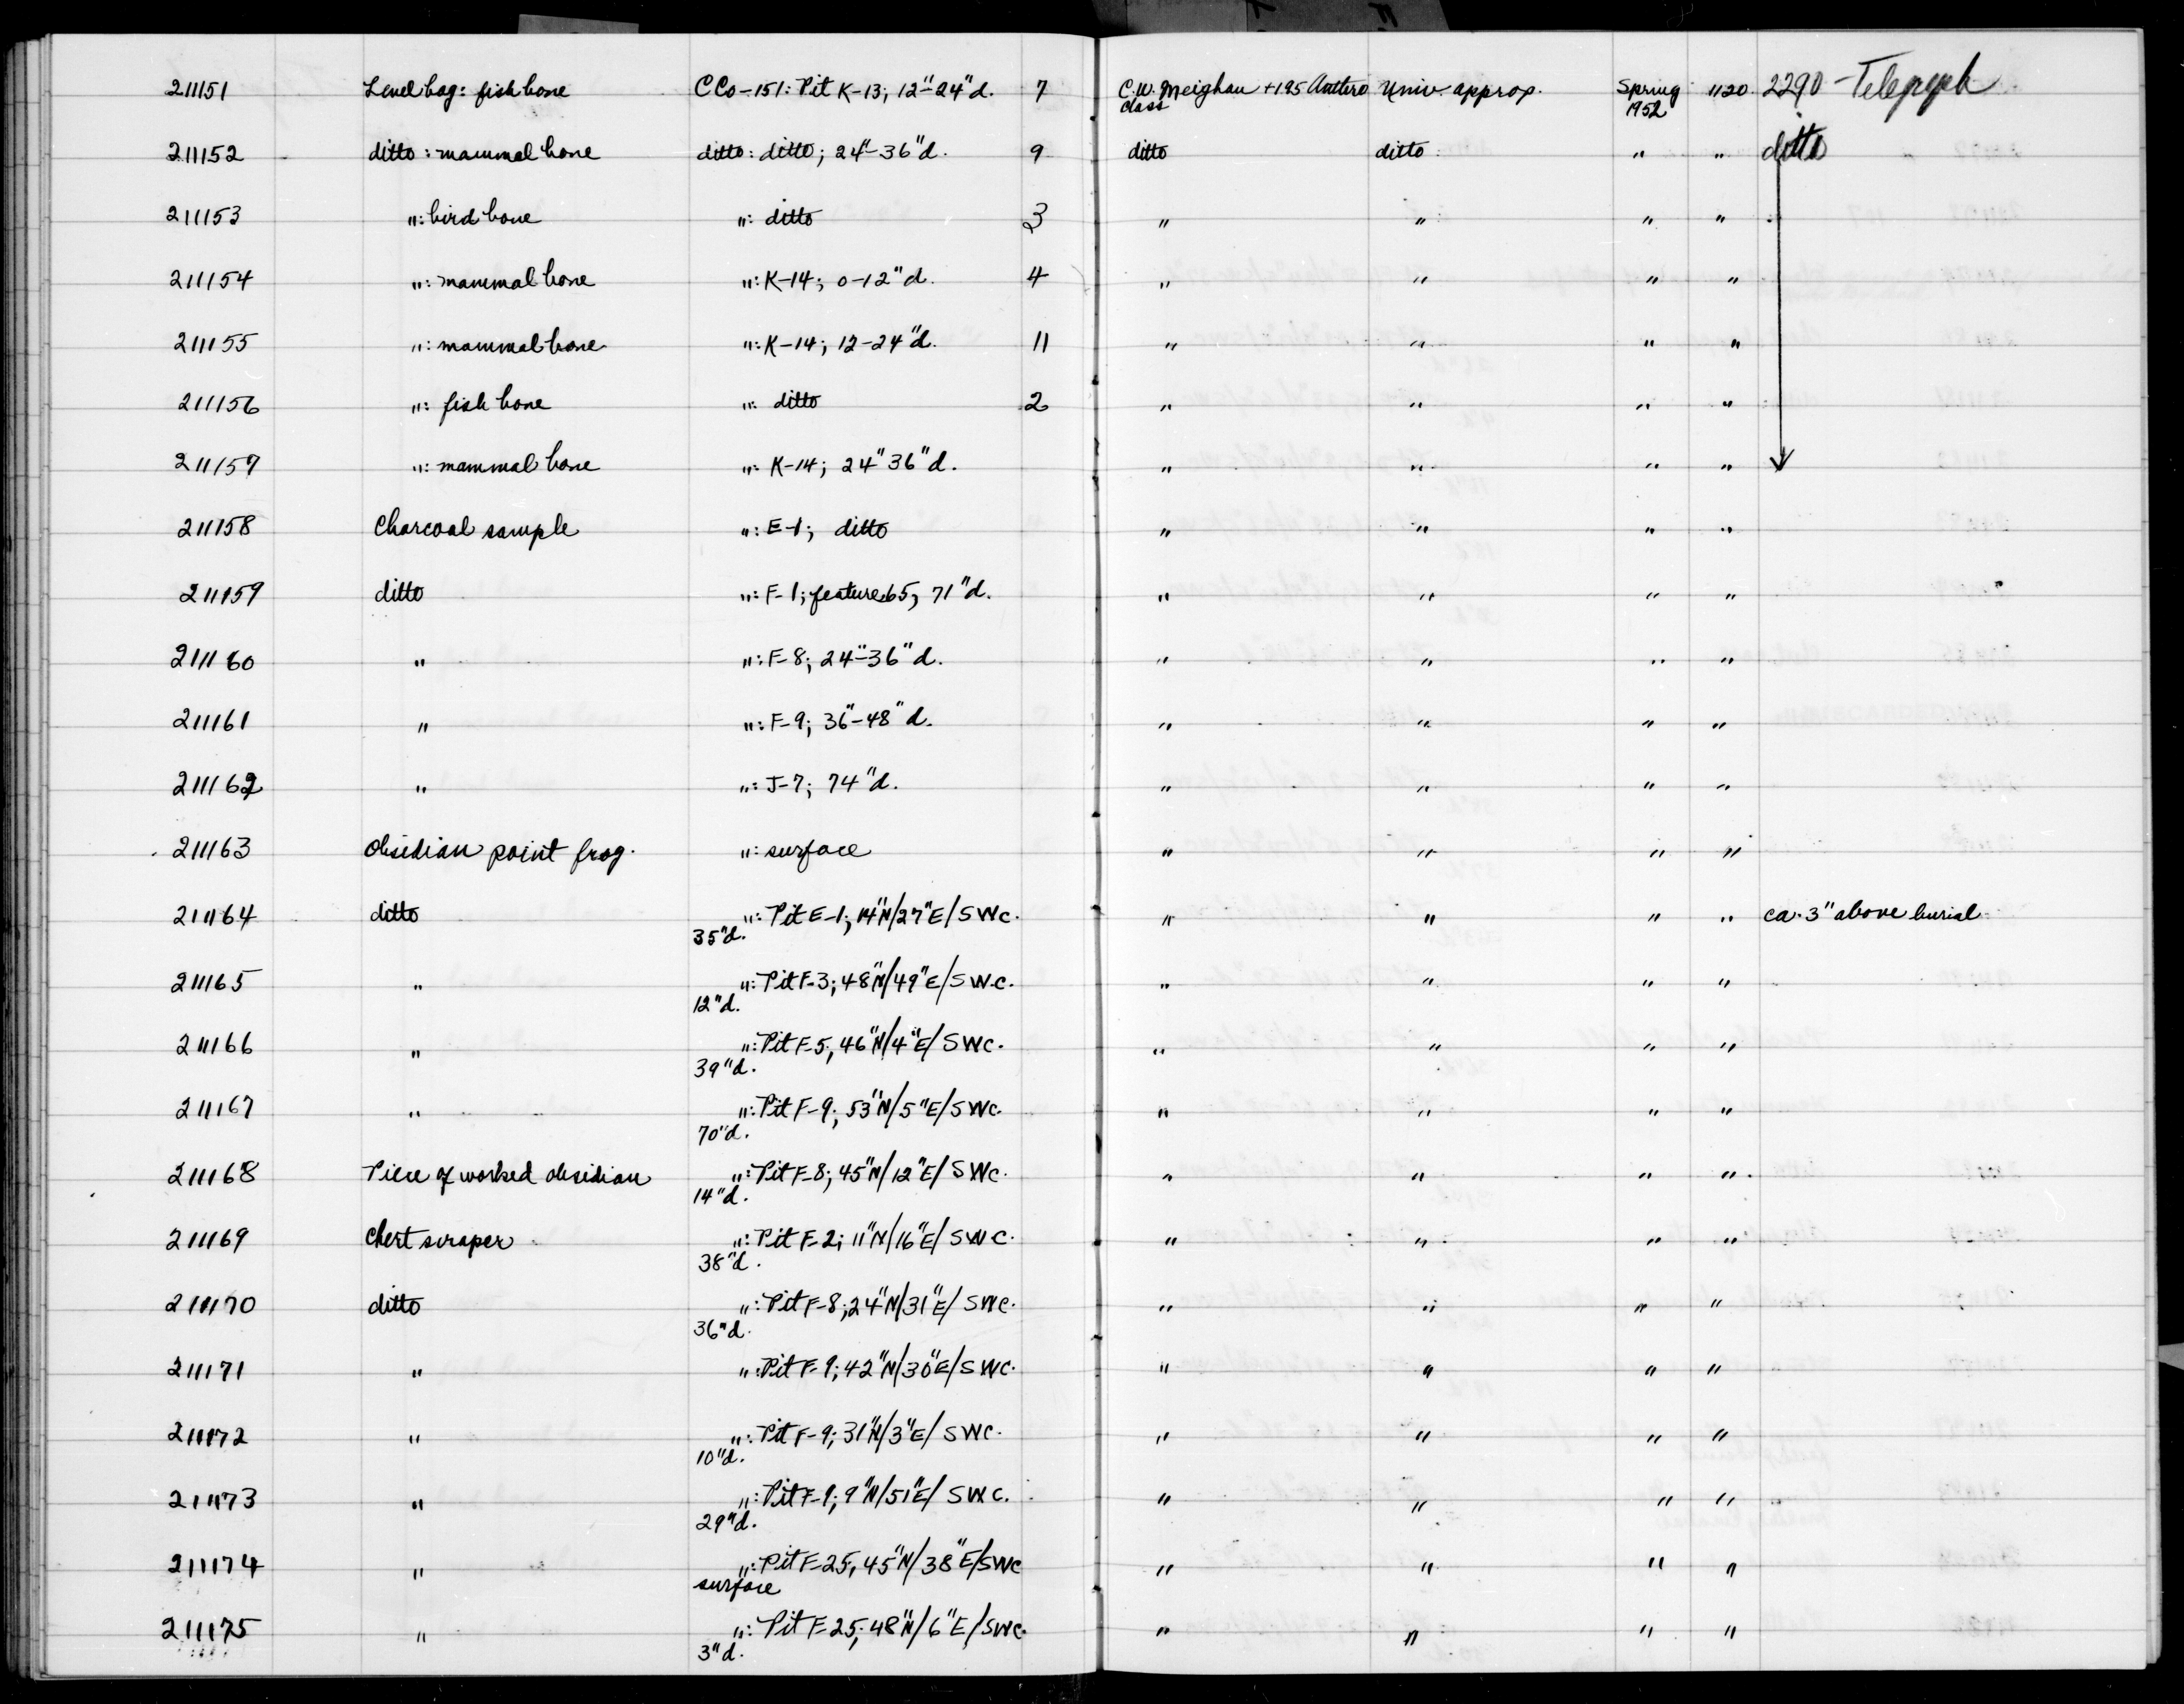 211151 Level bag: fish bone CCo-151: Pit K-13; 12"-24"d. 7 C.W. Meighan + 195 Anthro Univ. approp. Spring 1120 2290 - Telegraph
class 1952
211152 ditto: mammal bone ditto: ditto; 24"-36"d. 9 ditto ditto " " ditto
211153 ": bird bone ": ditto 3 " " " "
211154 ": mammal bone ": K-14; 0-12"d. 4 " " " "
211155 ": mammal bone ": K-14; 12-24"d. 11 " " " "
211156 ": fish bone ": ditto 2 " " " "
211157 ": mammal bone ": K-14; 24"36"d. " " " "
211158 Charcoal sample ": E-1; ditto " " " "
211159 ditto ": F-1; feature 65, 71"d. " " " "
211160 " ": F-8; 24"-36"d. " " " "
211161 " ": F-9; 36"-48"d. " " " "
211162 " ": J-7; 74"d. " " " "
211163 Obsidian point frag. ": surface " " " "
211164 ditto ": Pit E-1; 14"N/27"E/SWC. " " " " ca. 3" above burial
35"d.
211165 " ": Pit F-3; 48"N/49"E/SWC. " " " "
12"d.
211166 " ": Pit F-5; 46"N/4"E/SWC. " " " "
39"d.
211167 " ": Pit F-9; 53"N/5"E/SWC. " " " "
70"d.
211168 Piece of worked obsidian ": Pit F-8; 45"N/12"E/SWC. " " " "
14"d.
211169 Chert scraper ": Pit F-2; 11"N/16"E/SWC. " " " "
38"d.
211170 ditto ": Pit F-8; 24"N/31"E/SWC. " " " "
36"d.
211171 " ": Pit F-9; 42"N/30"E/SWC. " " " "
211172 " ": Pit F-9; 31"N/3"E/SWC. " " " "
10"d.
211173 " ": Pit F-9; 9"N/51"E/SWC. " " " "
29"d.
211174 " ": Pit F-25, 45"N/38"E/SWC " " " "
surface
211175 " ": Pit F-25; 48"N/6"E/SWC. " " " "
3"d.